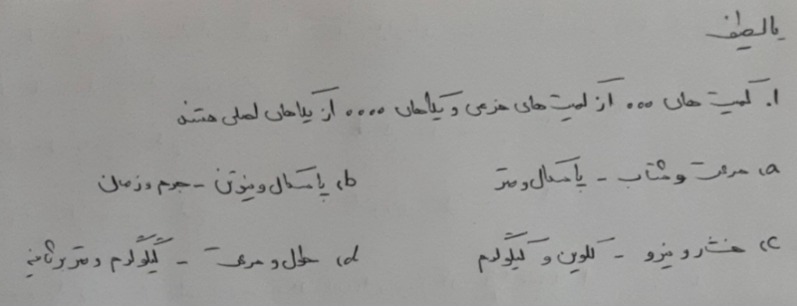 یا لطیف
۱. کمیت های ... از کمیت های فرعی و یکاهای .... از یکاهای اصلی هستند
a) سرعت و شتاب - پاسکال و متر b) پاسکال و نیوتن - جرم و زمان
c) فشار و نیرو - کلوین و کیلوگرم d) طول و سرعت - کیلوگرم و متر بر ثانیه